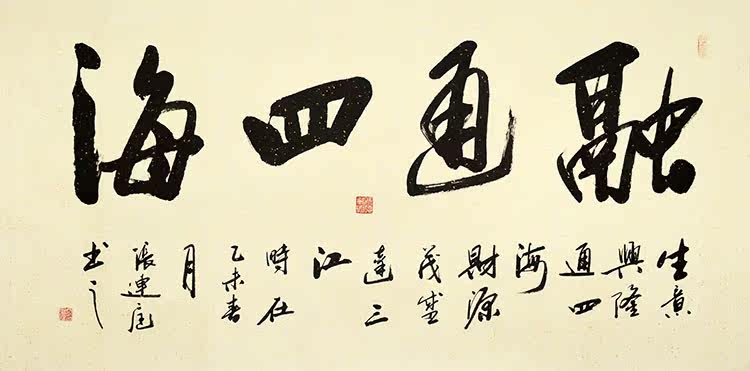 融通四海
生意
興隆
通四
海
財源
茂盛
達三
江
時在
乙未春
月
張運庭
书之